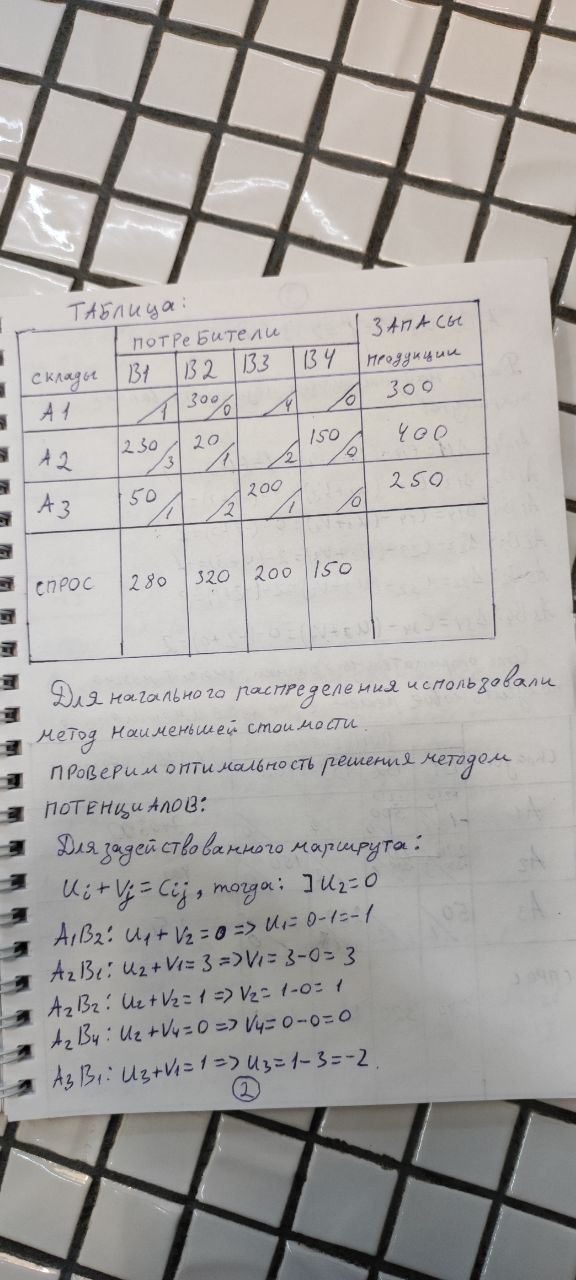 ТАБЛИЦА:
СКЛАДЫ ПОТРЕБИТЕЛИ ЗАПАСЫ ПРОДУКЦИИ
B1 B2 B3 B4
A1 /1 300/0 /4 /0 300
A2 230/3 20/1 /2 150/0 400
A3 50/1 /2 200/1 /0 250
СПРОС 280 320 200 150
Для начального распределения использовали
метод наименьшей стоимости.
ПРОВЕРИМ ОПТИМАЛЬНОСТЬ РЕШЕНИЯ МЕТОДОМ
ПОТЕНЦИАЛОВ:
Для задействованного маршрута:
Ui + Vj = Cij, тогда: ]U2=0
A1B2: U1 + V2 = 0 => U1 = 0-1 = -1
A2B1: U2 + V1 = 3 => V1 = 3-0 = 3
A2B2: U2 + V2 = 1 => V2 = 1-0 = 1
A2B4: U2 + V4 = 0 => V4 = 0-0 = 0
A3B1: U3 + V1 = 1 => U3 = 1-3 = -2.
2